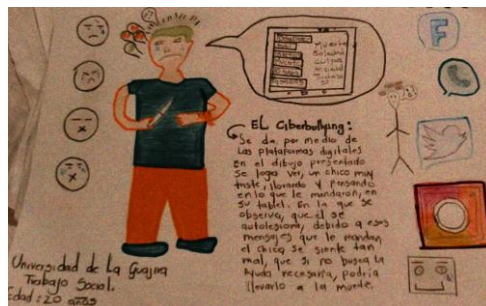 Muerte
Soledad
Culpa
EL Ciberbullying:
Se da, por medio de
Las plataformas digitales
En el dibujo presentado
Se logra ver, un chico muy
triste, llorando y pensando
en lo que le mandaron, en
su tablet. En la que se
observa, que él se
autolesiona, debido a esos
mensajes que le mandan,
el chico se siente tan
mal, que si no busca la
ayuda necesaria, podría
llevarlo a la muerte.
Universidad de La Guajira
Trabajo Social.
Edad: 20 años